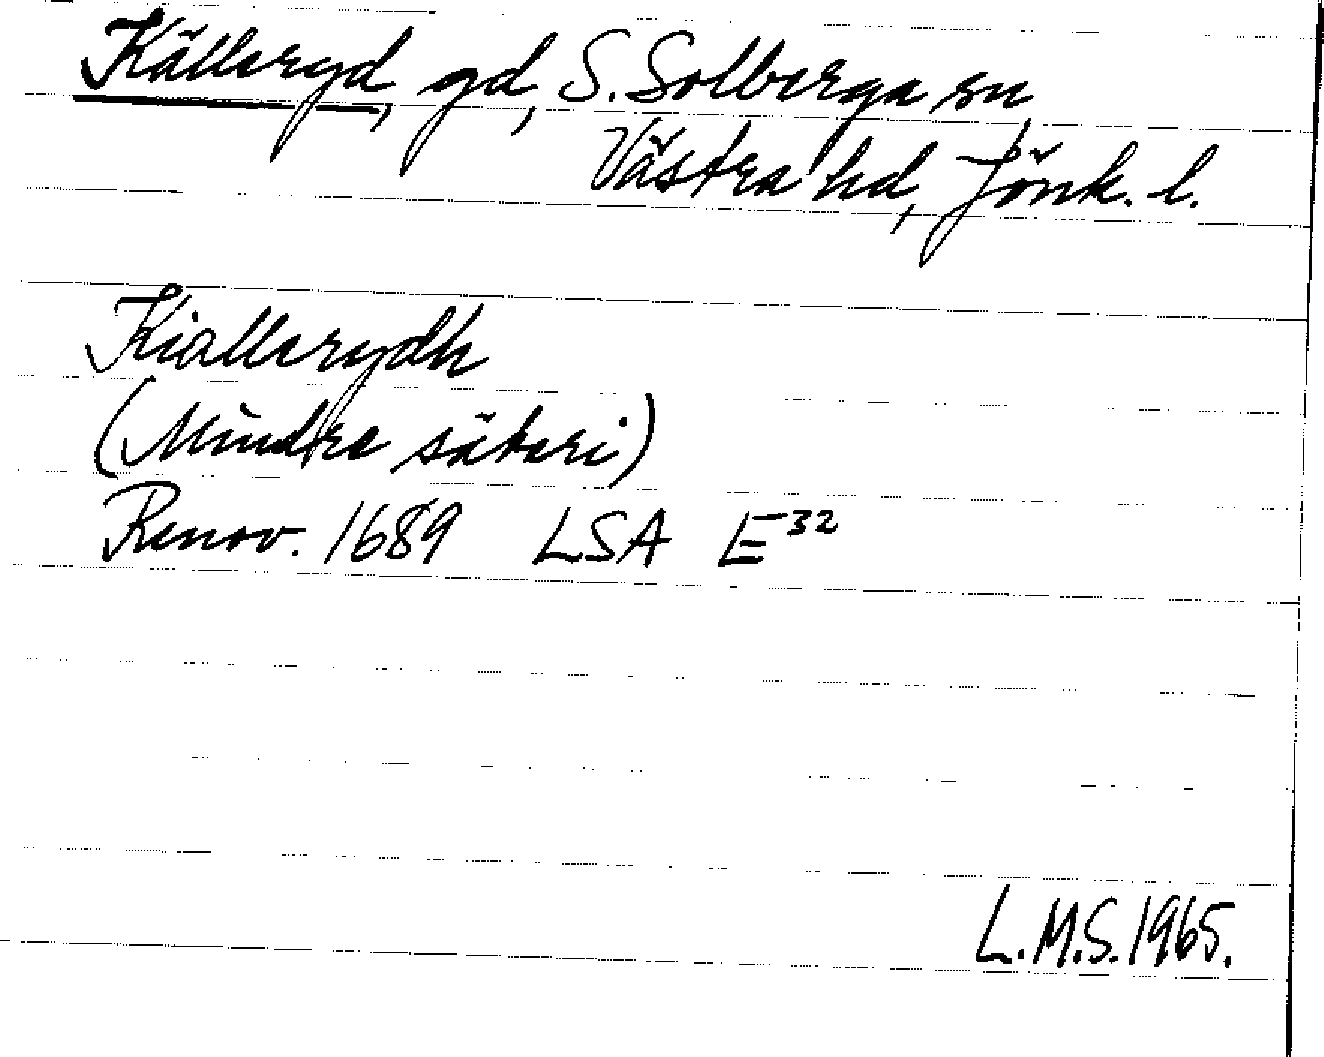 Källeryd, gd, S. Solberga sn
Västra hd, Jönk. l.
Kiallerydh
(Mindre säteri)
Renov. 1689 LSA E³²
L.M.S. 1965.